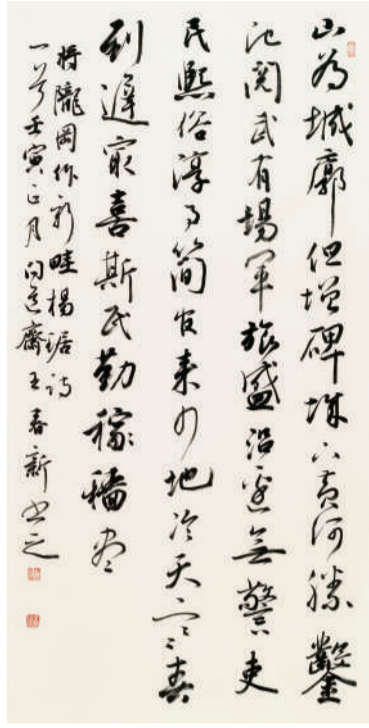 山為城廓但增碑下黄河勝鑿
池閱武有場軍旅盛沿邊無警吏
民熙俗淳事簡官來少地冷天寒春
到遲最喜斯民勤稼穡盡
將隴岡作新畦楊琚詩
一首壬寅正月問道齋王春新書之